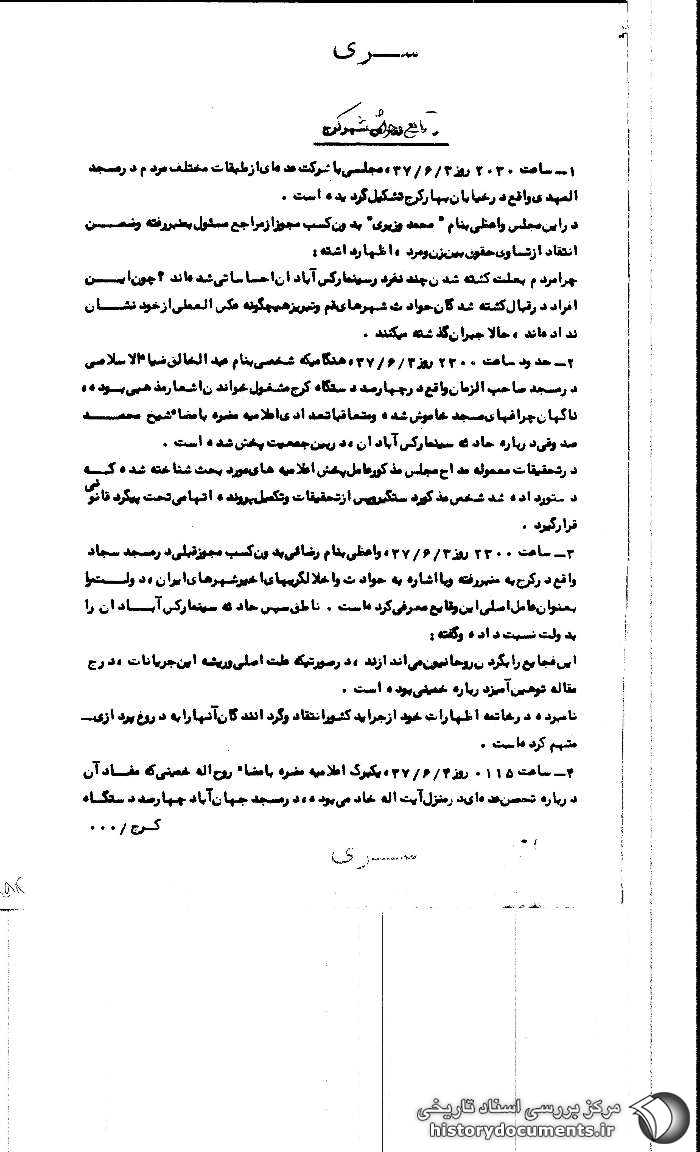 ســری
وقایع شهر کرج
۱ــ ساعت ۲۰۳۰ روز ۳۷/۶/۳، مجلسی با شرکت عده‌ای از طبقات مختلف مردم در مسجد
المهدی واقع در خیابان بهار کرج تشکیل گردیده است .
در این مجلس واعظی بنام " محمد وزیری" بدون کسب مجوز از مراجع مسئول بمنبر رفته وضمـــن
انتقاد از تساوی حقوق بین زن ومرد ، اظهار داشته :
چرا مردم بعلت کشته شدن چند نفر در سینما رکس آبادان احساساتی شده‌اند ؟ چون ایـــن
افراد در قبال کشته شدگان حوادث شهرهای قم وتبریز هیچگونه عکس العملی از خود نشـــان
نداده‌اند ، حالا جبران گذشته میکنند .
۲ــ حدود ساعت ۲۲۰۰ روز ۳۷/۶/۳، هنگامیکه شخصی بنام عبدالخالق ضیاءالاسلامی
در مسجد صاحب الزمان واقع در چهارصد دستگاه کرج مشغول خواندن اشعار مذهبی بوده ،
ناگهان چراغهای مسجد خاموش شده ومتعاقبا تعدادی اعلامیه مضره بامضاء شیخ محمـــد
صدوقی در باره حادثه سینما رکس آبادان ، در بین جمعیت پخش شده است .
در تحقیقات معموله مداح مجلس مذکور عامل پخش اعلامیه های مورد بحث شناخته شده کـــه
دستور داده شد شخص مذکور دستگیر و پس از تحقیقات وتکمیل پرونده اتهامی تحت پیگرد قانونی
قرار گیرد .
۳ــ ساعت ۲۳۰۰ روز ۳۷/۶/۳، واعظی بنام رضائی بدون کسب مجوز قبلی در مسجد سجاد
واقع در کرج به منبر رفته وبا اشاره به حوادث واخلالگریهای اخیر شهرهای ایران ، دولت را
بعنوان عامل اصلی این وقایع معرفی کرده است . ناطق سپس حادثه سینما رکس آبـــادان را
به دولت نسبت داده وگفته :
این فجایع را بگردن روحانیون می‌اندازند ، در صورتیکه علت اصلی وریشه این جریانات ، درج
مقاله توهین آمیز درباره خمینی بوده است .
نامبرده در خاتمه اظهارات خود از جراید کشور انتقاد وگردانندگان آنها را به دروغ پردازی ــ
متهم کرده است .
۴ــ ساعت ۰۱۱۵ روز ۳۷/۶/۴، یکبرگ اعلامیه مضره بامضاء روح اله خمینی که مفـــاد آن
درباره تحصن عده‌ای در منزل آیت اله خادمی بوده ، در مسجد جهان آباد چهارصد دستگـــاه
کـرج / ۰۰۰
ســـری
مرکز بررسی اسناد تاریخی
historydocuments.ir